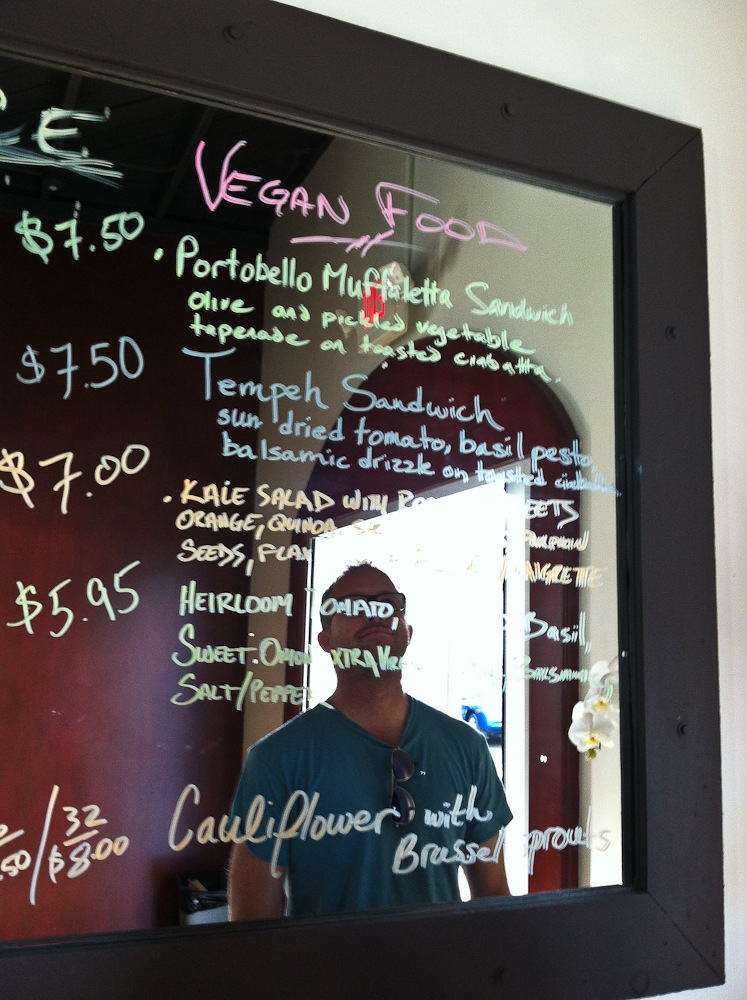 E
VEGAN FOOD
$7.50
• Portobello Muffaletta Sandwich
olive and pickled vegetable
tapenade on toasted ciabatta.
$7.50
Tempeh Sandwich
sun dried tomato, basil pesto,
balsamic drizzle on toasted ciabatta
$7.00
• KALE SALAD WITH BEETS
ORANGE, QUINOA
SEEDS, VINAIGRETTE
$5.95
HEIRLOOM TOMATO, Basil,
SWEET ONION EXTRA BALSAMIC
SALT/PEPPER
.50/ 32
$8.00
Cauliflower with
Brussel sprouts